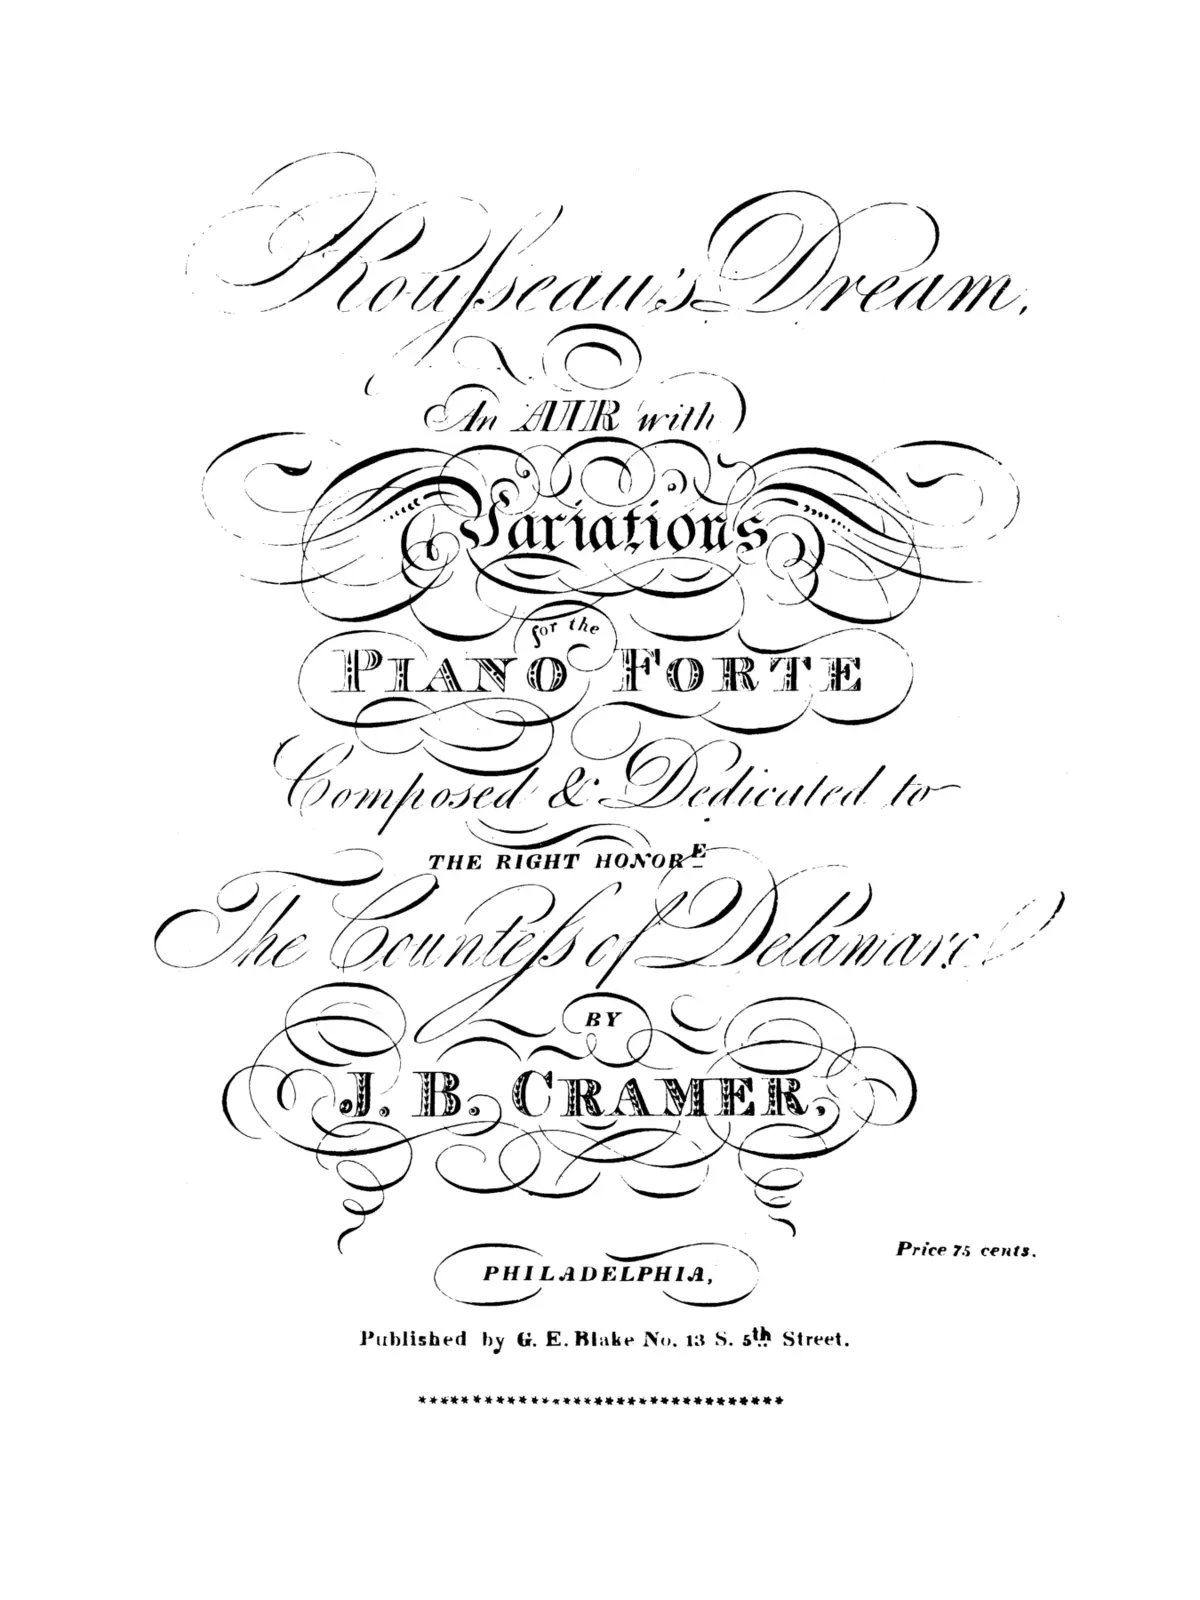 Rouſseau's Dream,
An AIR with
Variations
for the
PIANO FORTE
Composed & Dedicated to
THE RIGHT HONORE
The Counteſs of Delaware
BY
J. B. CRAMER,
Price 75 cents.
PHILADELPHIA,
Published by G. E. Blake No. 13 S. 5th Street.